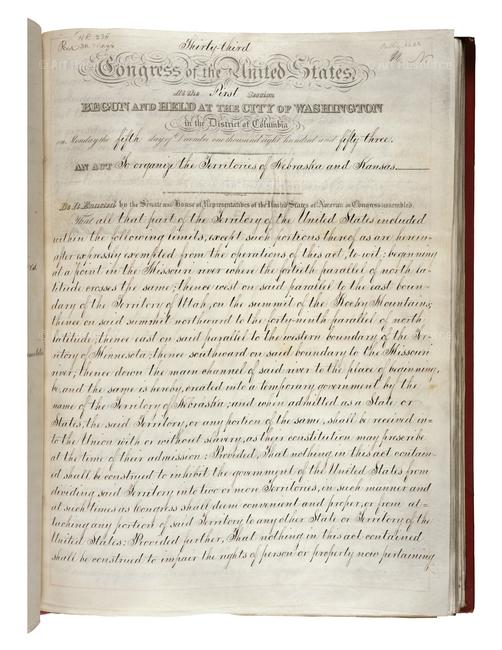 H.R. 236
Thirty-third
Congress of the United States,
At the First Session
BEGUN AND HELD AT THE CITY OF WASHINGTON
in the District of Columbia
on Monday the fifth day of December one thousand eight hundred and fifty three.
AN ACT To organize the Territories of Nebraska and Kansas.
Be It Enacted by the Senate and House of Representatives of the United States of America in Congress assembled,
That all that part of the Territory of the United States included
within the following limits, except such portions thereof as are herein-
after expressly exempted from the operations of this act, to wit: beginning
at a point in the Missouri river where the fortieth parallel of north la-
titude crosses the same; thence west on said parallel to the east boun-
dary of the Territory of Utah, on the summit of the Rocky Mountains;
thence on said summit northward to the forty-ninth parallel of north
latitude; thence east on said parallel to the western boundary of the Ter-
ritory of Minnesota; thence southward on said boundary to the Missouri
river; thence down the main channel of said river to the place of beginning,
be, and the same is hereby, created into a temporary government by the
name of the Territory of Nebraska; and when admitted as a State or
States, the said Territory, or any portion of the same, shall be received in-
to the Union with or without slavery, as their constitution may prescribe
at the time of their admission: Provided, That nothing in this act contain-
ed shall be construed to inhibit the government of the United States from
dividing said Territory into two or more Territories, in such manner and
at such times as Congress shall deem convenient and proper, or from at-
taching any portion of said Territory to any other State or Territory of the
United States: Provided further, That nothing in this act contained
shall be construed to impair the rights of person or property now pertaining